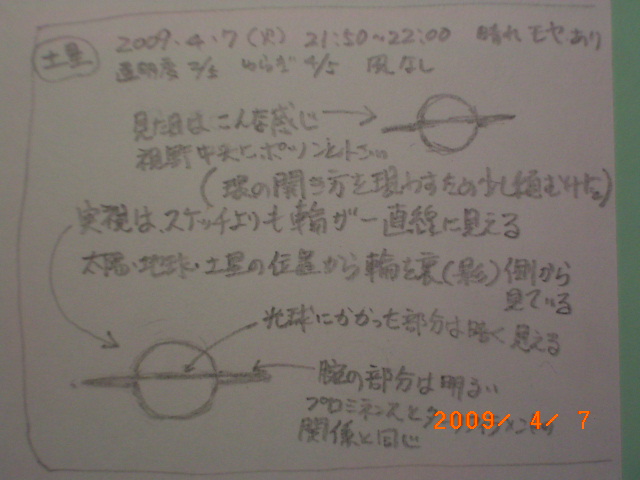 土星
2009.4.7 (火) 21:50~22:00 晴れ モヤあり
透明度 3/5 ゆらぎ 4/5 風なし
見た目はこんな感じ
視野中央にポツンと小さい
(環の開き方を現わすため少し傾むけた。)
実視は、スケッチよりも輪が一直線に見える
太陽・地球・土星の位置から輪を裏(影)側から
見ている
光球にかかった部分は暗く見える
腕の部分は明るい
プロミネンスとダ
関係と同じ
2009/ 4/ 7